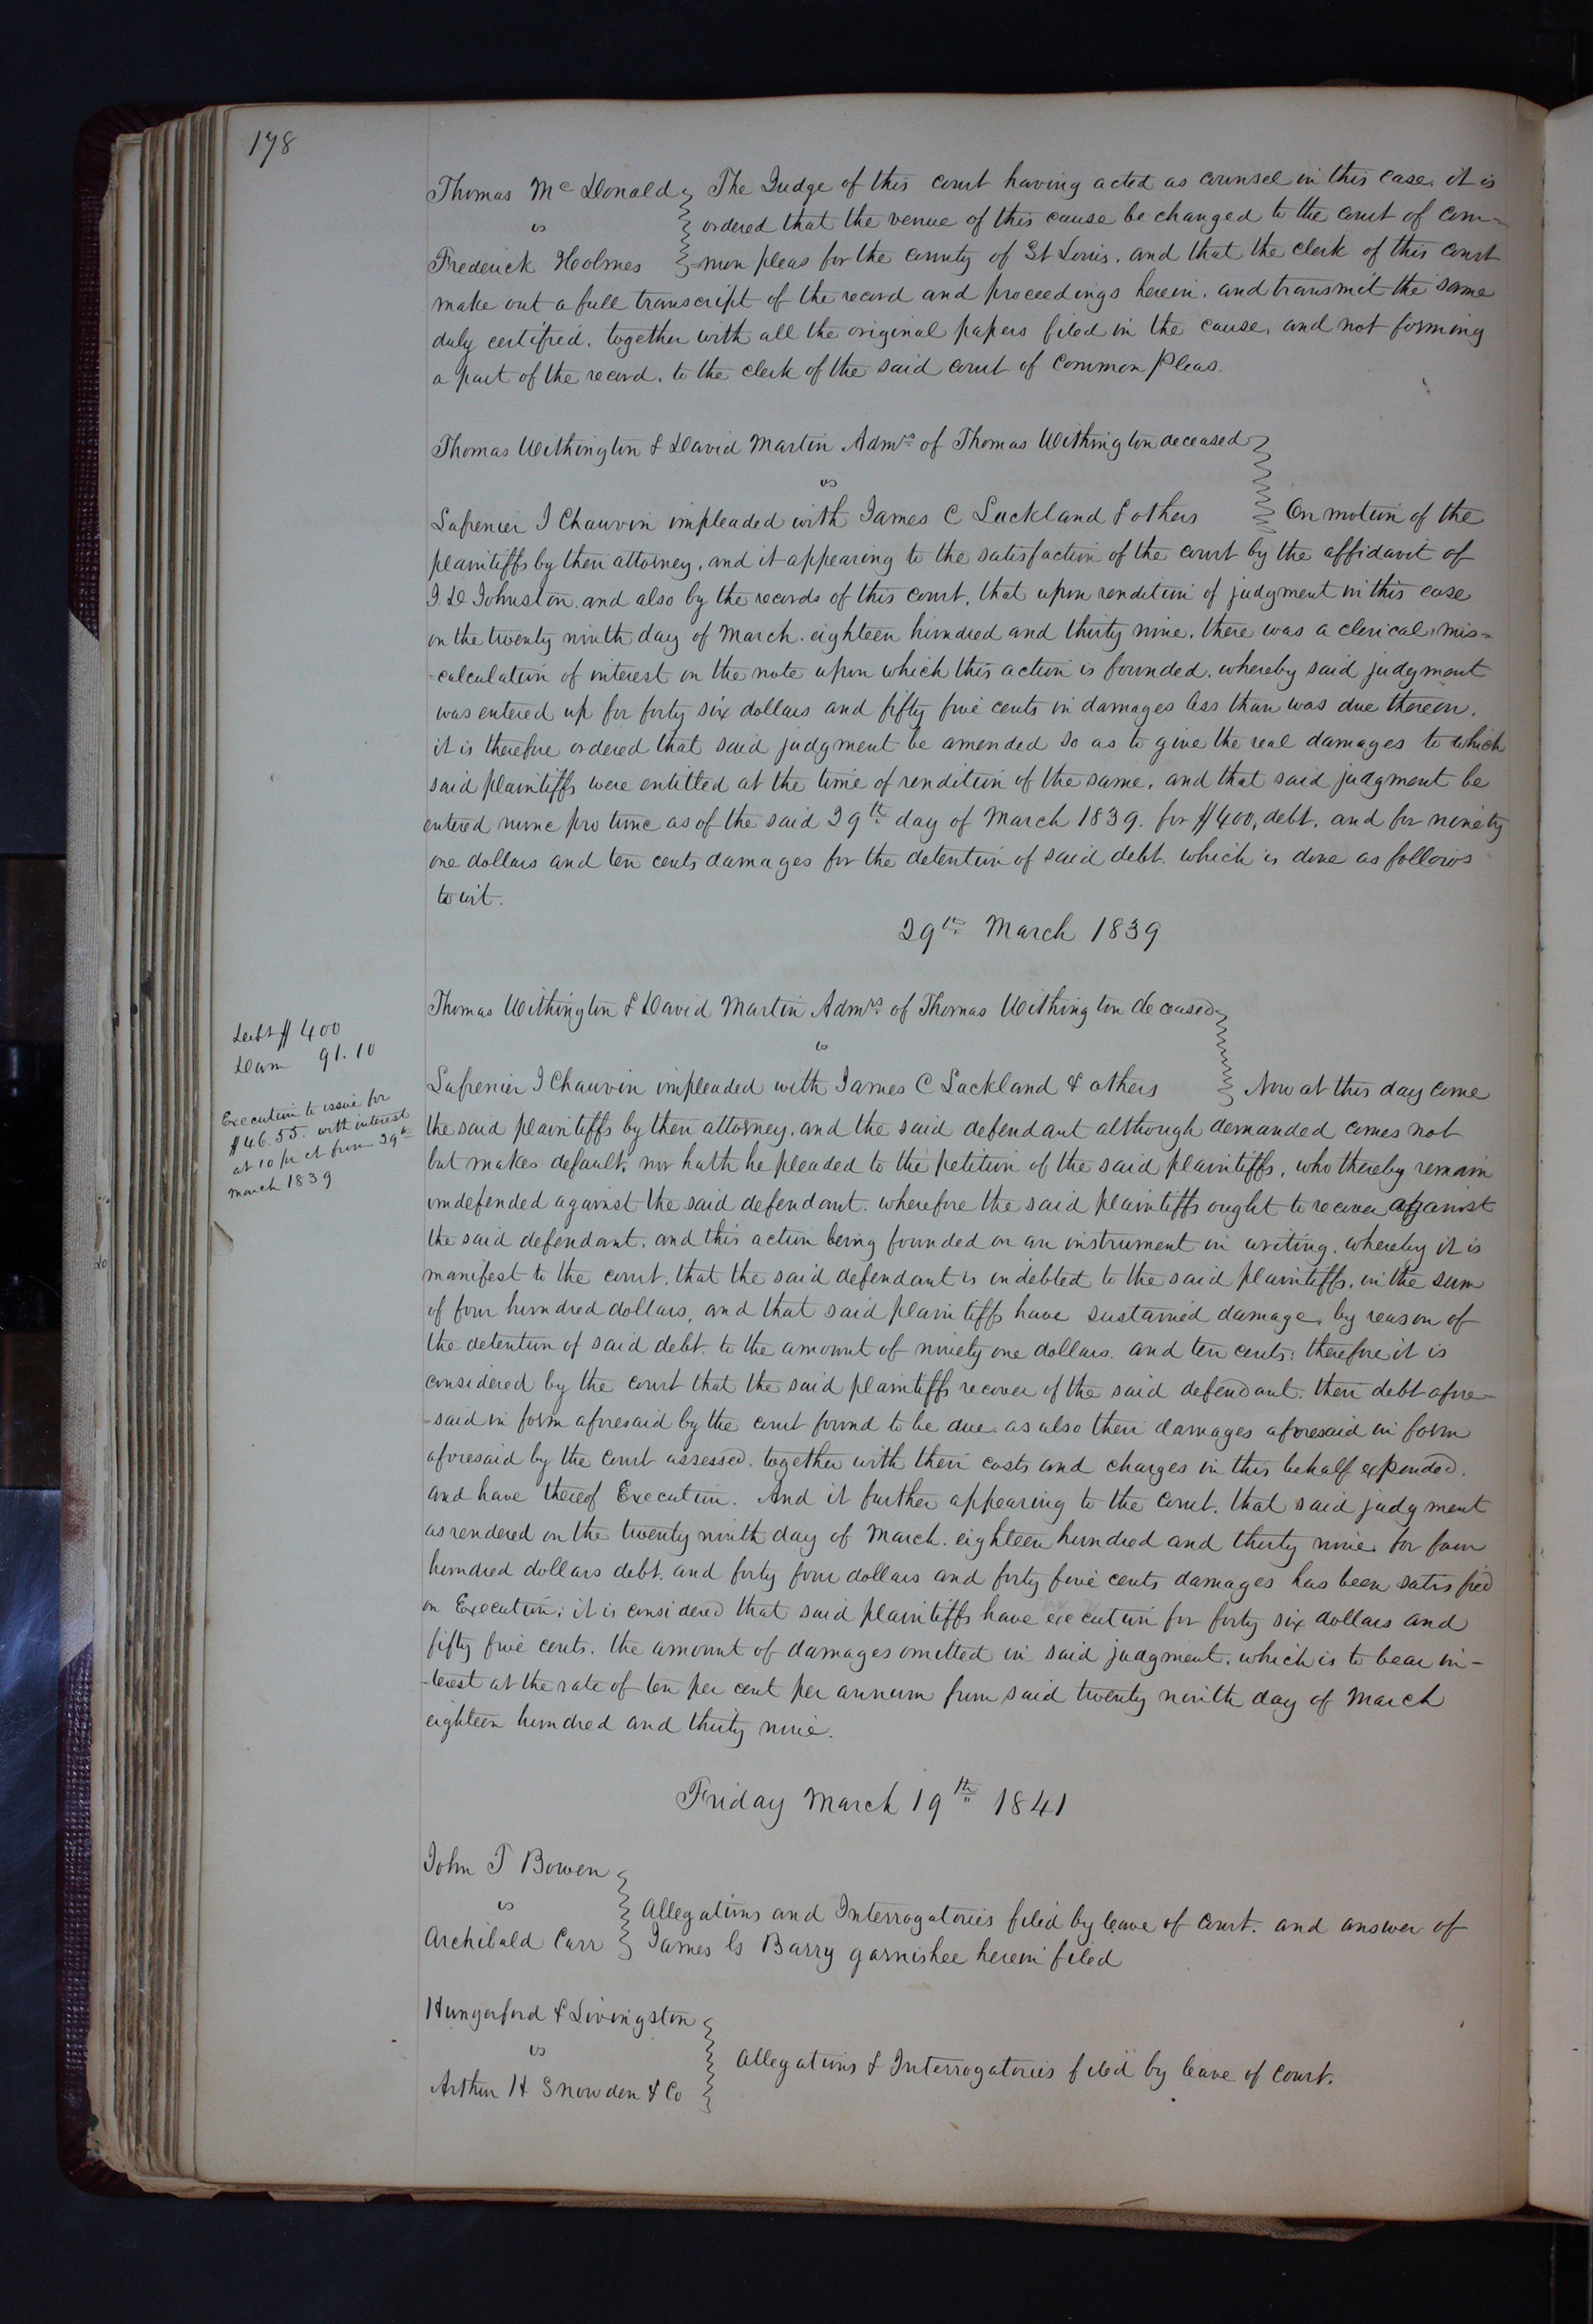 178
Thomas McDonald The Judge of this court having acted as counsel in this case, it is
vs ordered that the venue of this cause be changed to the court of com-
Frederick Holmes -mon pleas for the county of St Louis. and that the clerk of this court
make out a full transcript of the record and proceedings herein. and transmit the same
duly certified. together with all the original papers filed in the cause. and not forming
a part of the record. to the clerk of the said court of Common Pleas.
Thomas Withington & David Martin Admrs of Thomas Withington deceased
vs
Lafrenier J Chauvin impleaded with James C Lackland & others On motion of the
plaintiffs by their attorney, and it appearing to the satisfaction of the court by the affidavit of
J. D Johnston. and also by the records of this court. that upon rendition of judgment in this case
on the twenty ninth day of March. eighteen hundred and thirty nine. there was a clerical mis-
-calculation of interest on the note upon which this action is founded. whereby said judgment
was entered up for forty six dollars and fifty five cents in damages less than was due thereon.
it is therefore ordered that said judgment be amended so as to give the real damages to which
said plaintiffs were entitled at the time of rendition of the same. and that said judgment be
entered nunc pro tunc as of the said 29th day of March 1839. for $400, debt. and for ninety
one dollars and ten cents damages for the detention of said debt. which is done as follows
to wit.
29th March 1839
Thomas Withington & David Martin Admrs of Thomas Withington deceased
vs
Lafrenier J Chauvin impleaded with James C Lackland & others Now at this day come
Debt $ 400
Dam 91.10
Execution to issue for
$46.55. with interest
at 10 pr ct from 29th
March 1839
the said plaintiffs by their attorney. and the said defendant although demanded comes not
but makes default. nor hath he pleaded to the petition of the said plaintiffs, who thereby remain
undefended against the said defendant. wherefore the said plaintiffs ought to recover against
the said defendant. and this action being founded on an instrument in writing. whereby it is
manifest to the court. that the said defendant is indebted to the said plaintiffs. in the sum
of four hundred dollars, and that said plaintiffs have sustained damage, by reason of
the detention of said debt. to the amount of ninety one dollars. and ten cents. therefore it is
considered by the court that the said plaintiffs recover of the said defendant. their debt afore-
-said in form aforesaid by the court found to be due. as also their damages aforesaid in form
aforesaid by the court assessed. together with their costs and charges in this behalf expended.
and have thereof Execution. And it further appearing to the court. that said judgment
as rendered on the twenty ninth day of March. eighteen hundred and thirty nine. for four
hundred dollars debt. and forty four dollars and forty five cents damages has been satisfied
on Execution; it is considered that said plaintiffs have execution for forty six dollars and
fifty five cents. the amount of damages omitted in said judgment. which is to bear in-
-terest at the rate of ten per cent per annum from said twenty ninth day of March
eighteen hundred and thirty nine.
Friday March 19th 1841
John T Bowen
vs Allegations and Interrogatories filed by leave of court. and answer of
Archibald Carr James G Barry garnishee herein filed
Hungerford & Livingston
vs Allegations & Interrogatories filed by leave of court.
Arthur H Snowden & Co